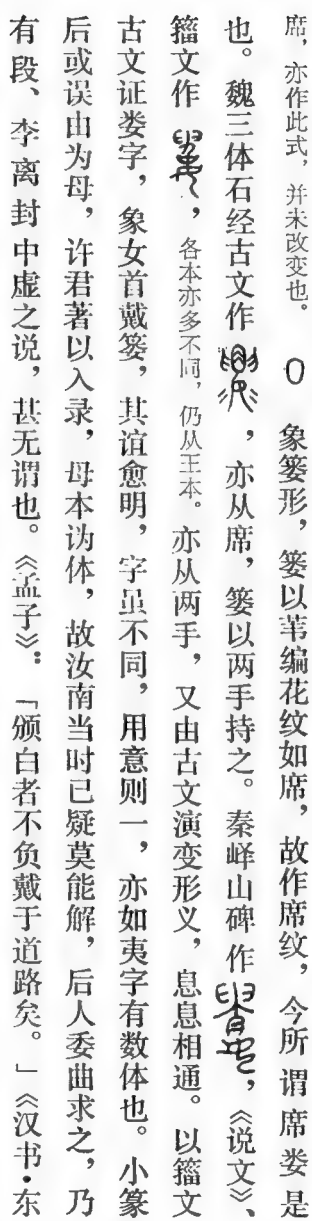 席，亦作此式，并未改变也。 〇 象篓形，篓以苇编花纹如席，故作席纹，今所谓席娄是
也。魏三体石经古文作，亦从席，篓以两手持之。秦峄山碑作，《说文》、
籀文作，各本亦多不同，仍从王本。亦从两手，又由古文演变形义，息息相通。以籀文
古文证娄字，象女首戴篓，其谊愈明，字虽不同，用意则一，亦如夷字有数体也。小篆
后或误由为母，许君著以入录，母本讹体，故汝南当时已疑莫能解，后人委曲求之，乃
有段、李离封中虚之说，甚无谓也。《孟子》：「颁白者不负戴于道路矣。」《汉书·东